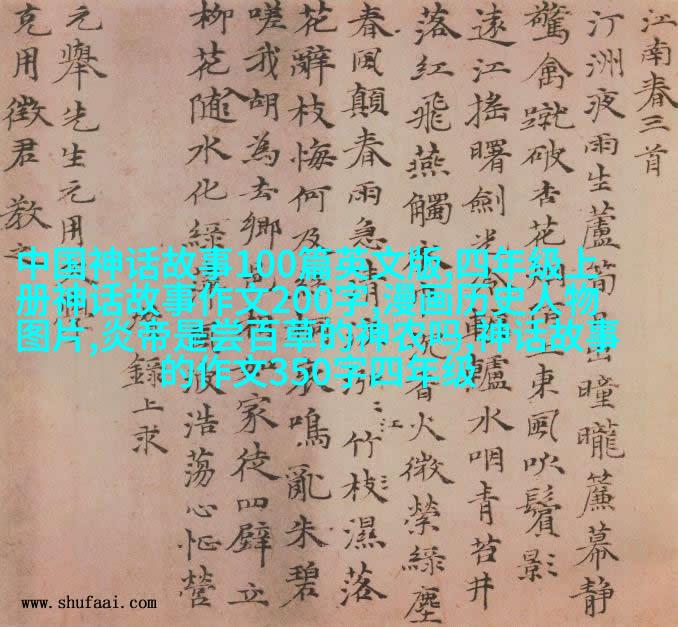 江南春三首
汀洲夜雨生蘆筍日出曈曨簾幕靜
驚禽蹴破杏花東風吹鬢影
遠江搖曙劍光轤水咽青苔井
落紅飛燕觸火微縈綠塵
春風顛春雨急清江竹枝濕落
花辭枝悔何及鳴亂朱碧
嗟我胡為去鄉家徒四壁立
柳花隨水化綠波浩蕩心怔營
錄上求
元舉先生元用
克用徵君教之
中国神话故事100篇英文版,四年级上
册神话故事作文200字,漫画历史人物
图片,炎帝是尝百草的神农吗,神话故事
的作文350字四年级
www.shufaai.com